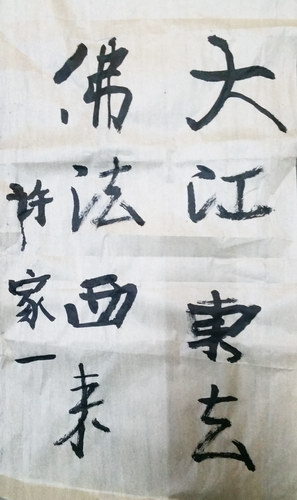 大江東去
佛法西来
许家一